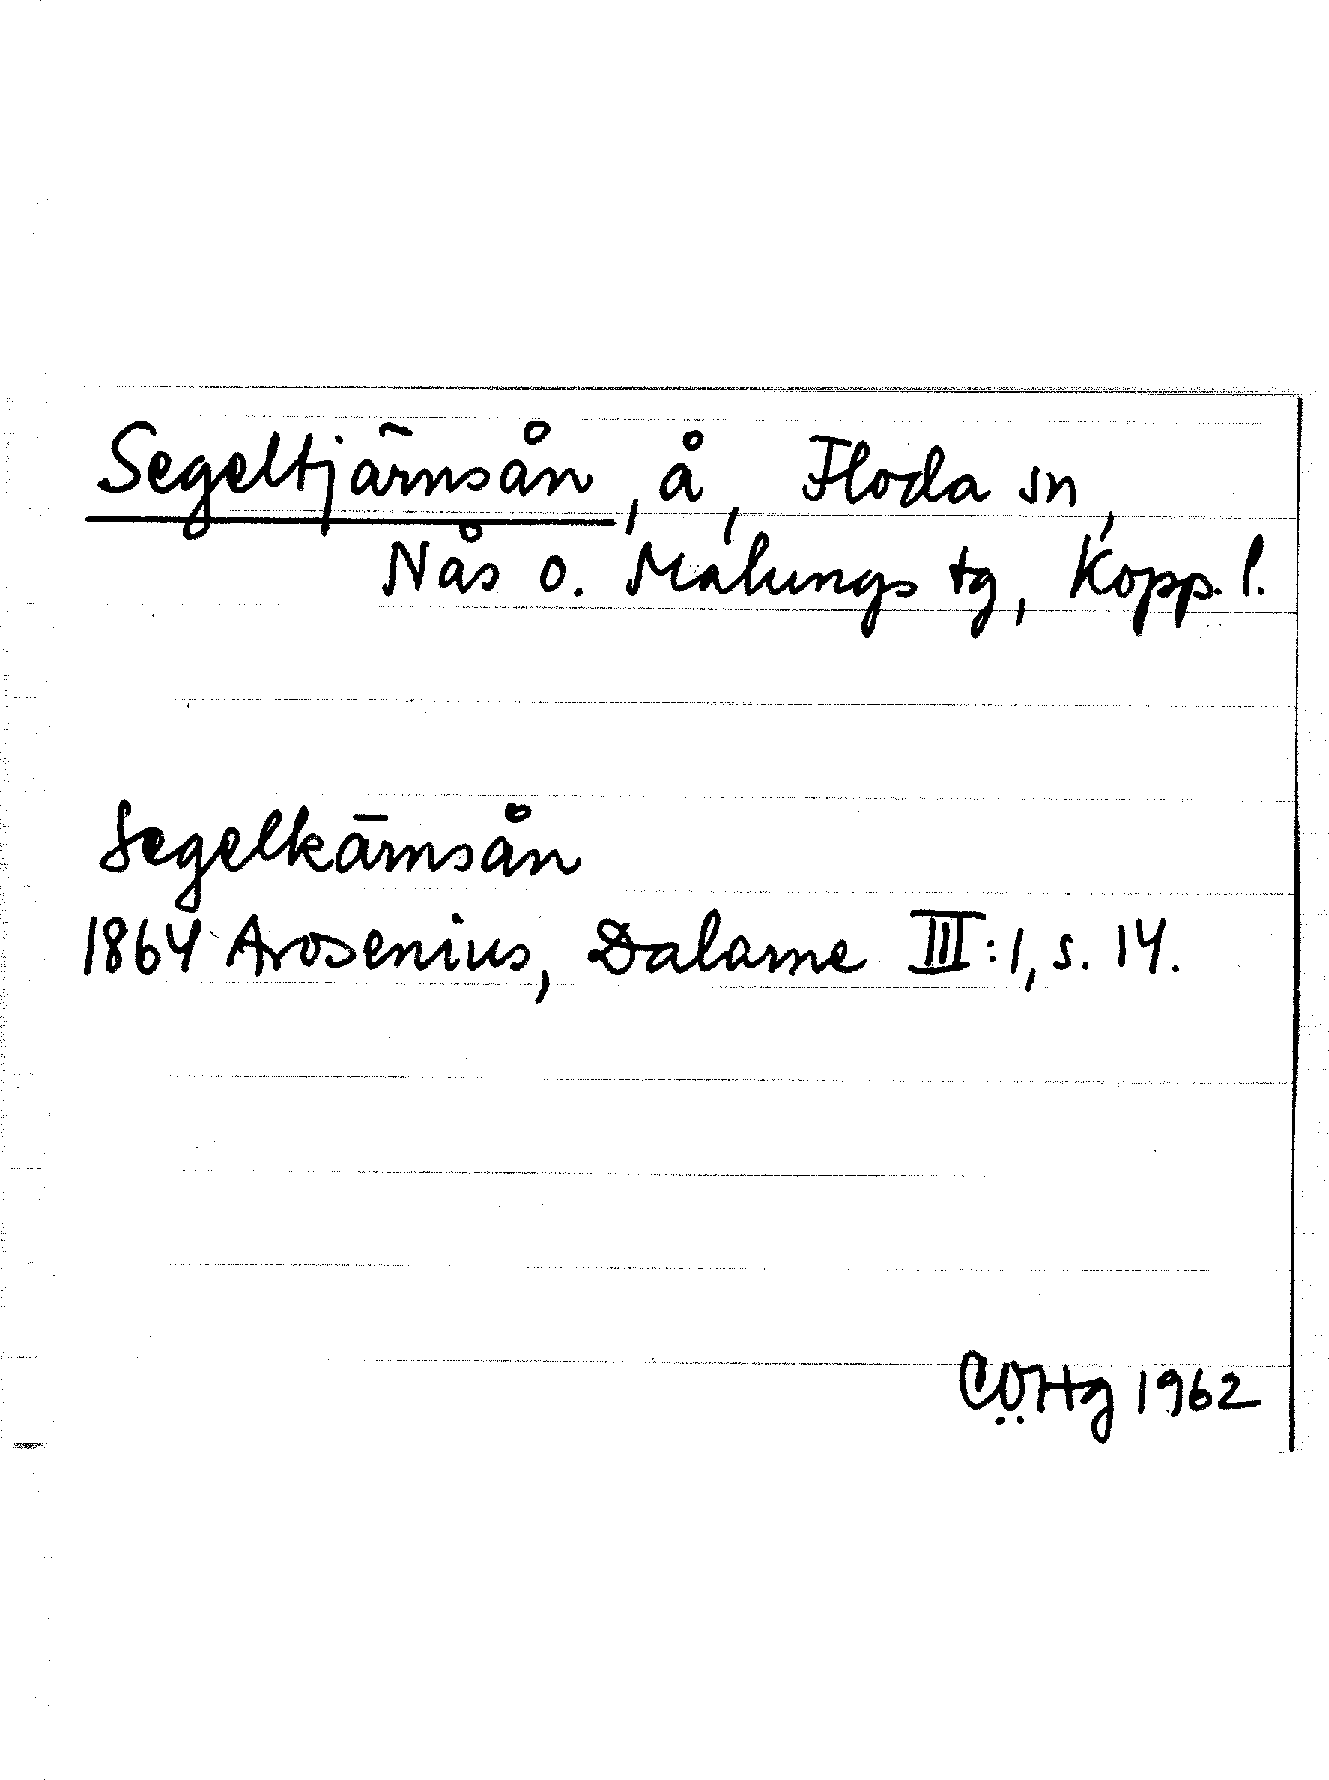 Segeltjärnsån, å, Floda sn,
Nås o. Malungs tg, Kopp. l.
Segelkärnsån
1864 Arosenius, Dalarne III:1, s. 14.
CÖHg 1962